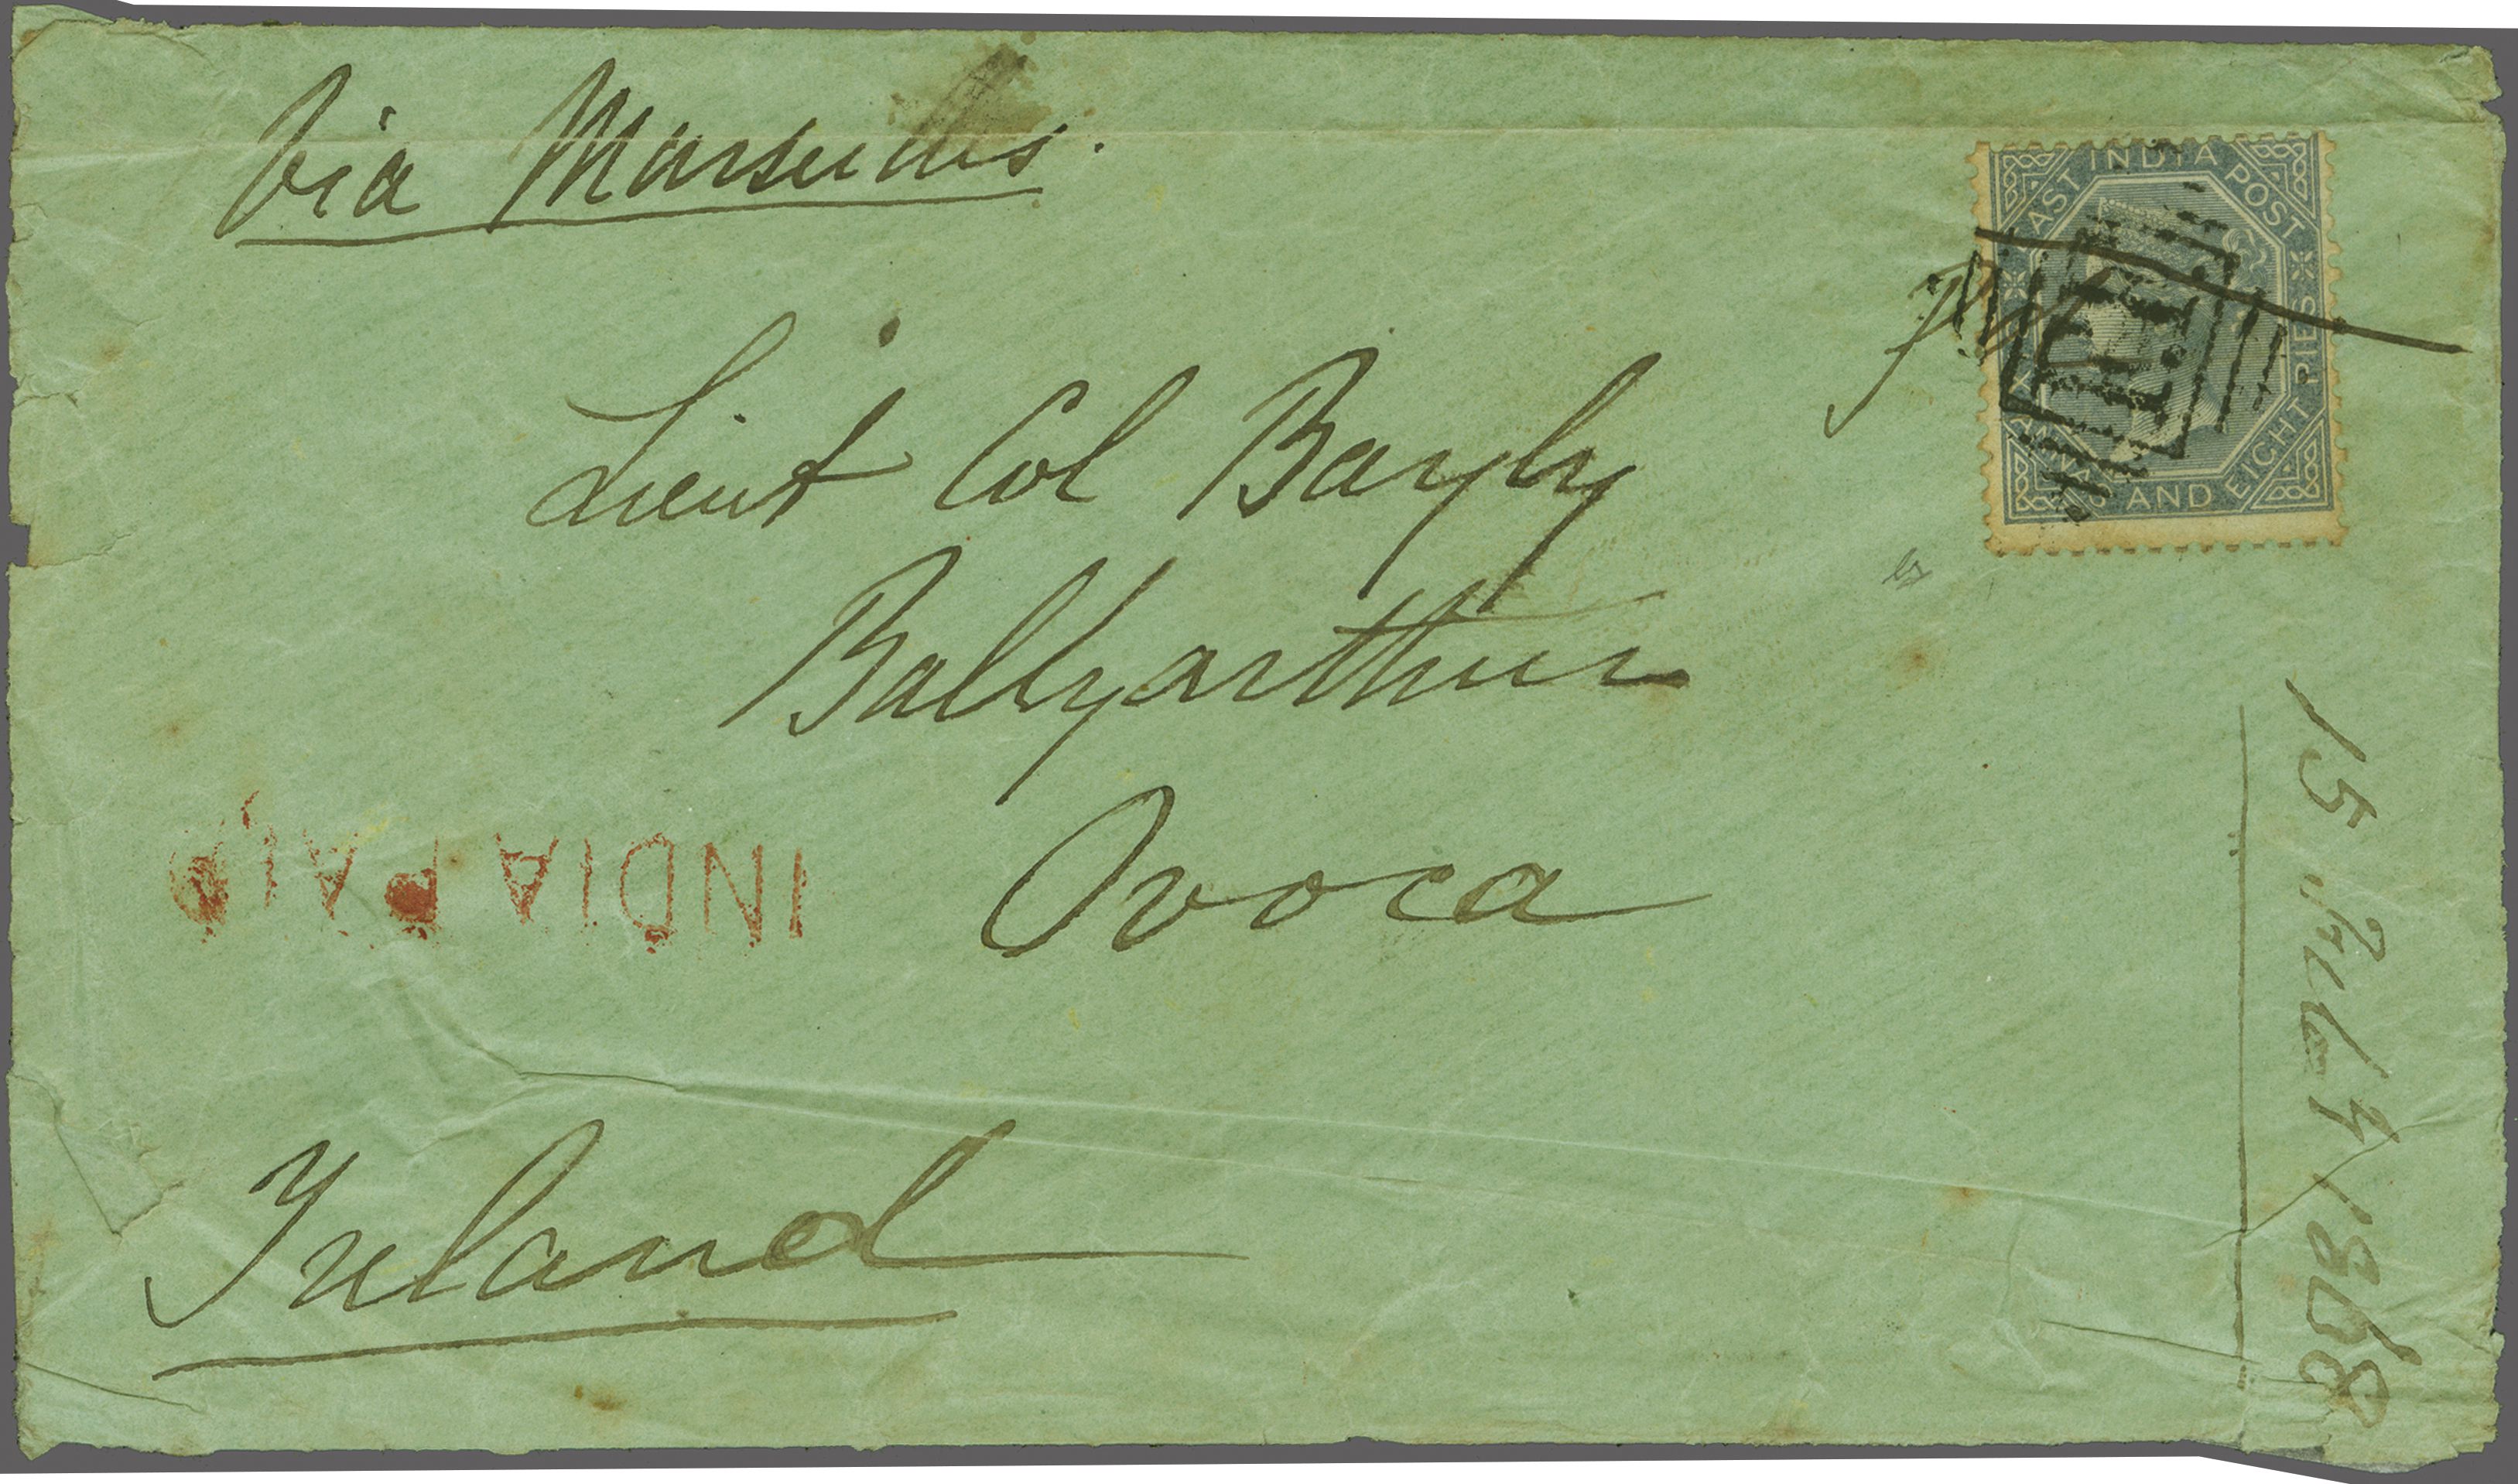 Via Marseilles.
EAST INDIA POSTAGE
SIX ANNAS AND EIGHT PIES
Lieut Col Bayly
Ballyarthur
Ovoca
INDIA PAID
Ireland
15 July 1868